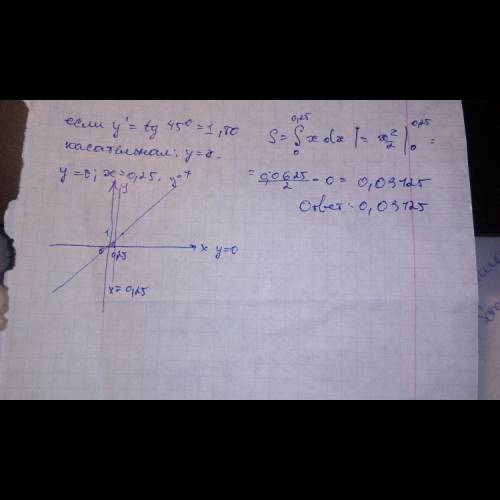 если y' = tg 45° = 1, то
касательная: y = x.
y = 0; x = 0,25.
y = x
y
1
0
0,25
x y=0
x = 0,25
S = ∫₀^0,25 x dx | = x²/2 |₀^0,25 =
= 0,0625/2 - 0 = 0,03125
Ответ: 0,03125